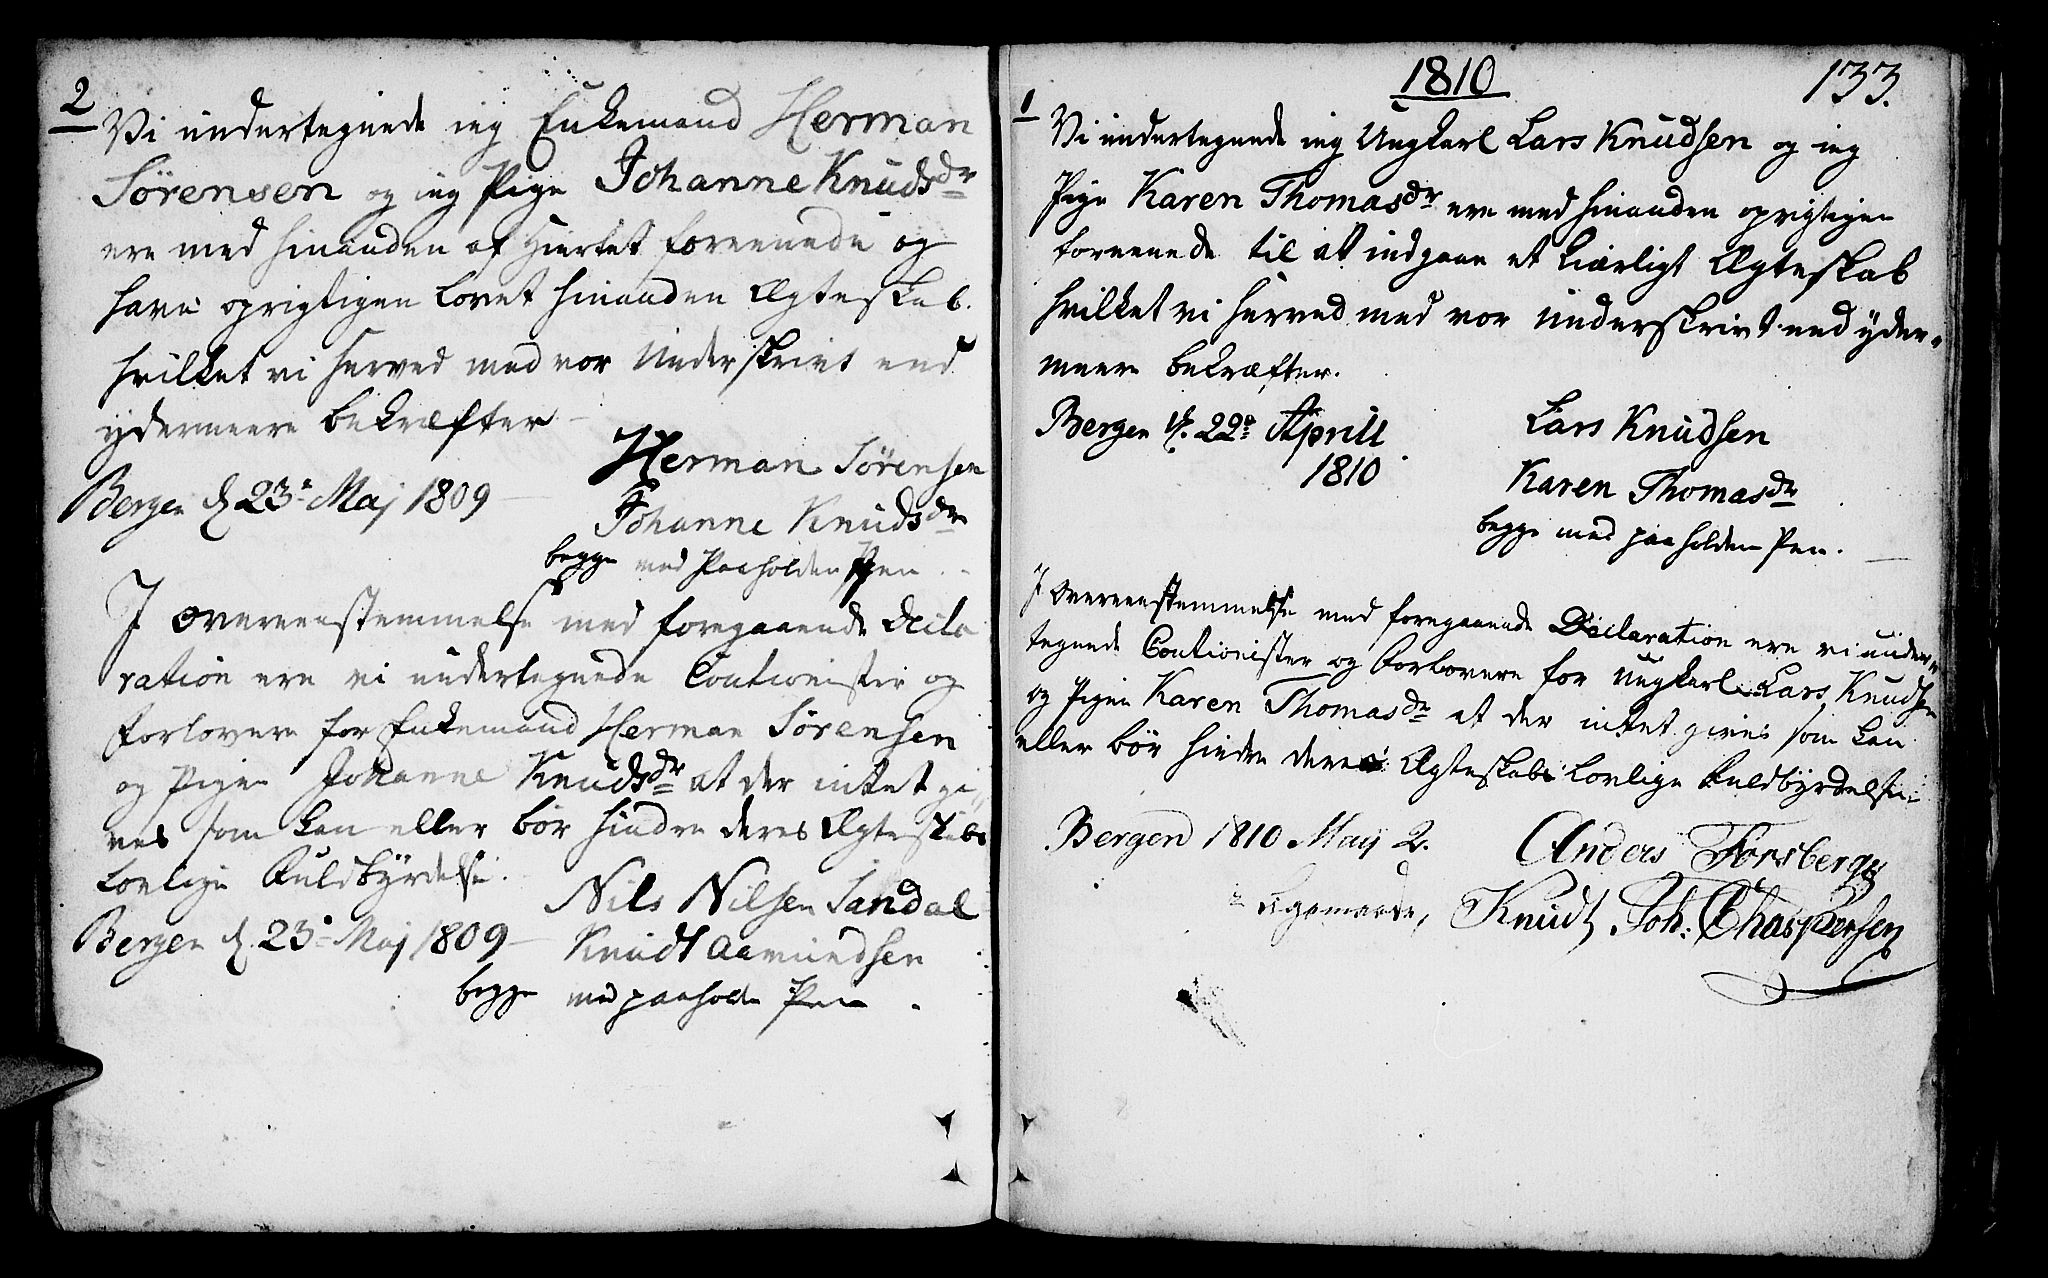 2
Vi undertegnede ieg Enkemand Herman
Sørensen og ieg Pige Johanne Knudsdr
ere med hinanden af Hiertet foreenede og
have oprigtigen lovet hinanden Ægteskab.
hvilket vi herved med vor Underskrivt end
ydermeere bekræfter
Bergen d. 23de Maj 1809
Herman Sørensen
Johanne Knudsdr
begge med Paaholden Pen
I overeenstemmelse med foregaaende Decla
ration ere vi undertegnede Coutionister og
forlovere for Enkemand Herman Sørensen
og Pigen Johanne Knudsdr at der intet gi,
ves som kan eller bør hindre deres Ægteskabs
lovlige Fuldbyrdelse.
Bergen d. 23de Maj 1809
Nils Nilsen Sandal
Knudt Aamundsen
begge med paaholden Pen
1810
133.
1
Vi undertegnede ieg Ungkarl Lars Knudsen og ieg
Pige Karen Thomasdr ere med hinanden oprigtigen
foreenede til at indgaae et kiærligt Ægteskab
hvilket vi herved med vor Underskrivt end yder-
meere bekræfter.
Bergen d. 22de Aprill
1810
Lars Knudsen
Karen Thomasdr
begge med paaholden Pen.
I Overeenstemmelse med foregaaende Declaration ere vi under-
tegnede Coutionister og Forlovere for Ungkarl Lars Knudsen
og Pigen Karen Thomasdr at der intet gives som kan
eller bør hindre deres Ægteskabs lovlige Fuldbyrdelse.
Bergen 1810 May 2.
Anders Forsberg
Knudt Joh: Chaspersen